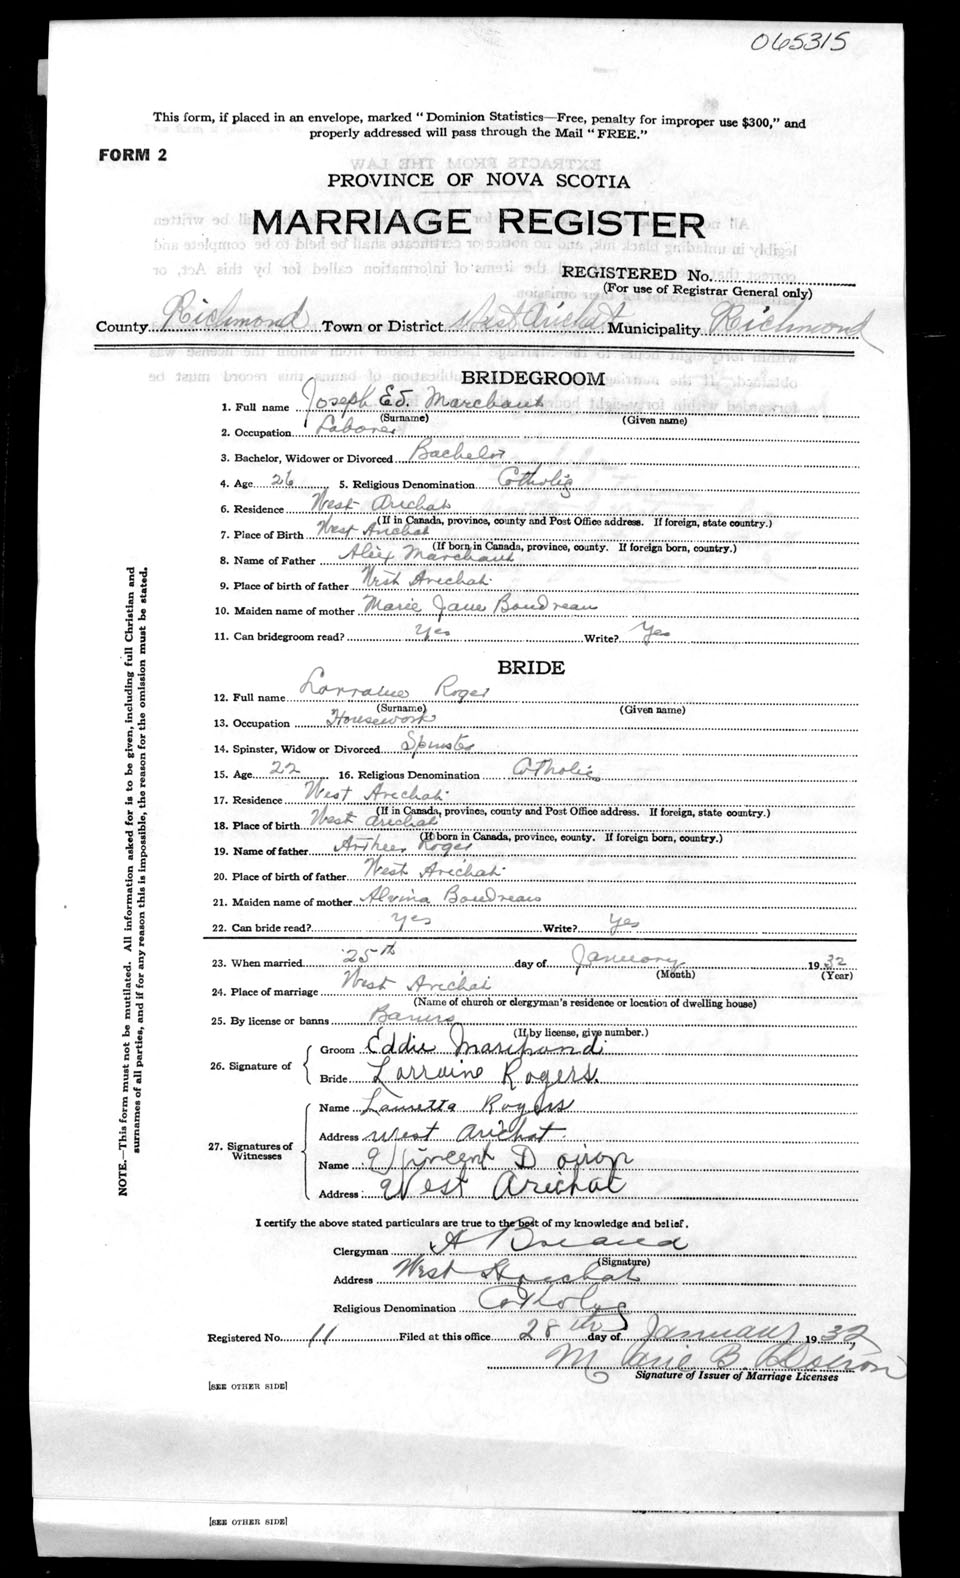 065315
This form, if placed in an envelope, marked "Dominion Statistics—Free, penalty for improper use $300," and
properly addressed will pass through the Mail "FREE."
FORM 2
PROVINCE OF NOVA SCOTIA
MARRIAGE REGISTER
REGISTERED No.
(For use of Registrar General only)
County Richmond Town or District West Arichat Municipality Richmond
BRIDEGROOM
1. Full name Joseph Ed. Marchant
(Surname) (Given name)
2. Occupation Laborer
3. Bachelor, Widower or Divorced Bachelor
4. Age 26 5. Religious Denomination Catholic
6. Residence West Arichat
(If in Canada, province, county and Post Office address. If foreign, state country.)
7. Place of Birth West Arichat
(If born in Canada, province, county. If foreign born, country.)
8. Name of Father Alex Marchant
9. Place of birth of father West Arichat
10. Maiden name of mother Marie Jane Boudreau
11. Can bridegroom read? Yes Write? Yes
BRIDE
12. Full name Lorraine Roger
(Surname) (Given name)
13. Occupation Housework
14. Spinster, Widow or Divorced Spinster
15. Age 22 16. Religious Denomination Catholic
17. Residence West Arichat
(If in Canada, province, county and Post Office address. If foreign, state country.)
18. Place of birth West Arichat
(If born in Canada, province, county. If foreign born, country.)
19. Name of father Roger
20. Place of birth of father West Arichat
21. Maiden name of mother Alvina Boudreau
22. Can bride read? Yes Write? Yes
23. When married 25th day of January 1932
(Month) (Year)
24. Place of marriage West Arichat
(Name of church or clergyman's residence or location of dwelling house)
25. By license or banns Banns
(If by license, give number.)
26. Signature of
Groom Eddie
Bride Lorraine Rogers.
27. Signatures of Witnesses
Name Lauretta Rogers
Address West Arichat.
Name Vincent Doiron
Address West Arichat
I certify the above stated particulars are true to the best of my knowledge and belief.
Clergyman A
(Signature)
Address West Arichat
Religious Denomination Catholic
Registered No. 11 Filed at this office 28th day of January 1932
B. Doiron
Signature of Issuer of Marriage Licenses
[SEE OTHER SIDE]
[SEE OTHER SIDE]
NOTE.—This form must not be mutilated. All information asked for is to be given, including full Christian and
surnames of all parties, and if for any reason this is impossible, the reason for the omission must be stated.